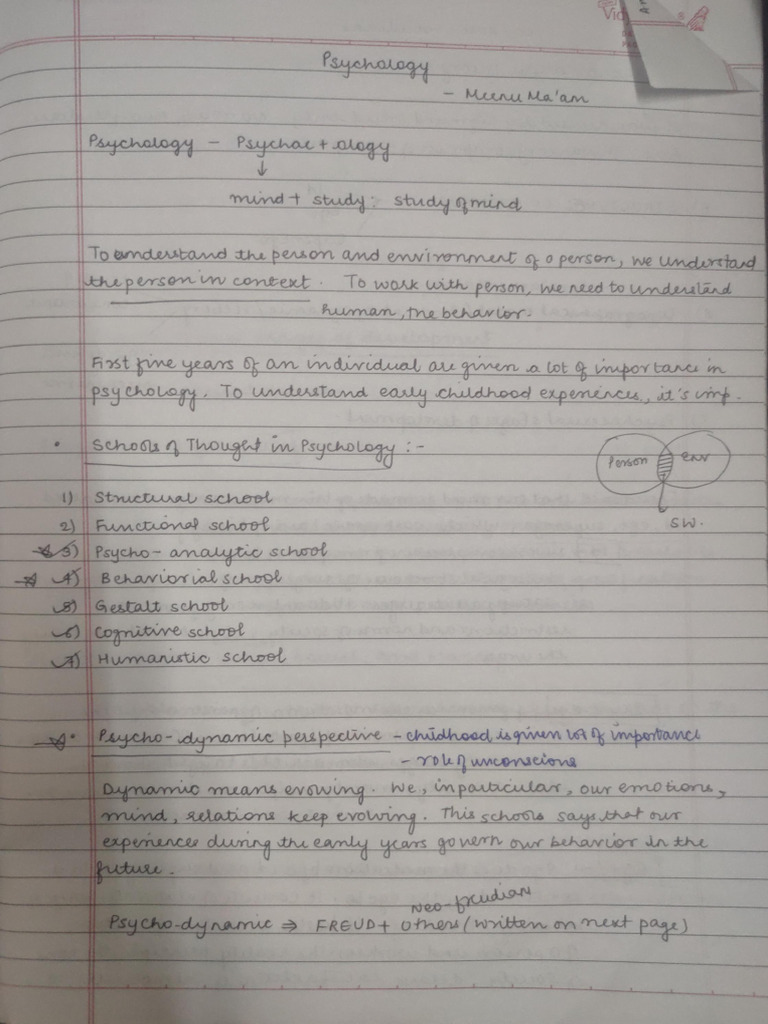 Psychology
- Meenu Ma'am
Psychology - Psychae + ology
↓
mind + study : study of mind
To understand the person and environment of a person, we understand
the person in context. To work with person, we need to understand
human, the behavior.
First five years of an individual are given a lot of importance in
psychology. To understand early childhood experiences, it's imp.
• Schools of Thought in Psychology :-
Person env
SW.
1) Structural school
2) Functional school
3) Psycho-analytic school
4) Behaviorial school
5) Gestalt school
6) Cognitive school
7) Humanistic school
• Psycho-dynamic perspective - childhood is given lot of importance
- role of unconscions
Dynamic means evowing. We, in particular, our emotions,
mind, relations keep evolving. This schools says that our
experiences during the early years govern our behavior in the
future.
Neo-freudian
Psycho-dynamic ⇒ FREUD + Others (written on next page)